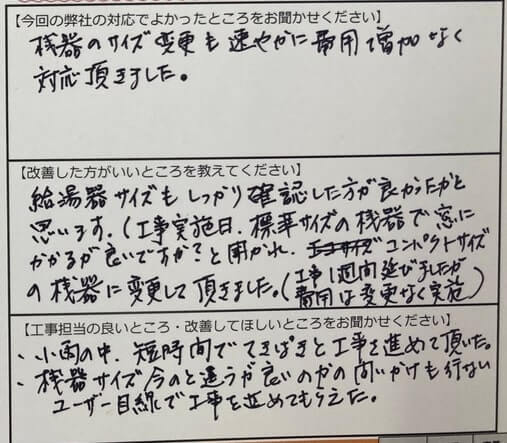 【今回の弊社の対応でよかったところをお聞かせください】
機器のサイズ変更も速やかに費用増加なく
対応頂きました。
【改善した方がいいところを教えてください】
給湯器サイズもしっかり確認した方が良かったかと
思います。(工事実施日、標準サイズの機器で窓に
かかるが良いですか?と聞かれ、コンパクトサイズ
の機器に変更して頂きました。(工事1週間延びましたが
費用は変更なく実施)
【工事担当の良いところ・改善してほしいところをお聞かせください】
・小雨の中、短時間でてきぱきと工事を進めて頂いた。
・機器サイズ今のと違うが良いのかの問いかけも行ない
ユーザー目線で工事を進めてもらえた。